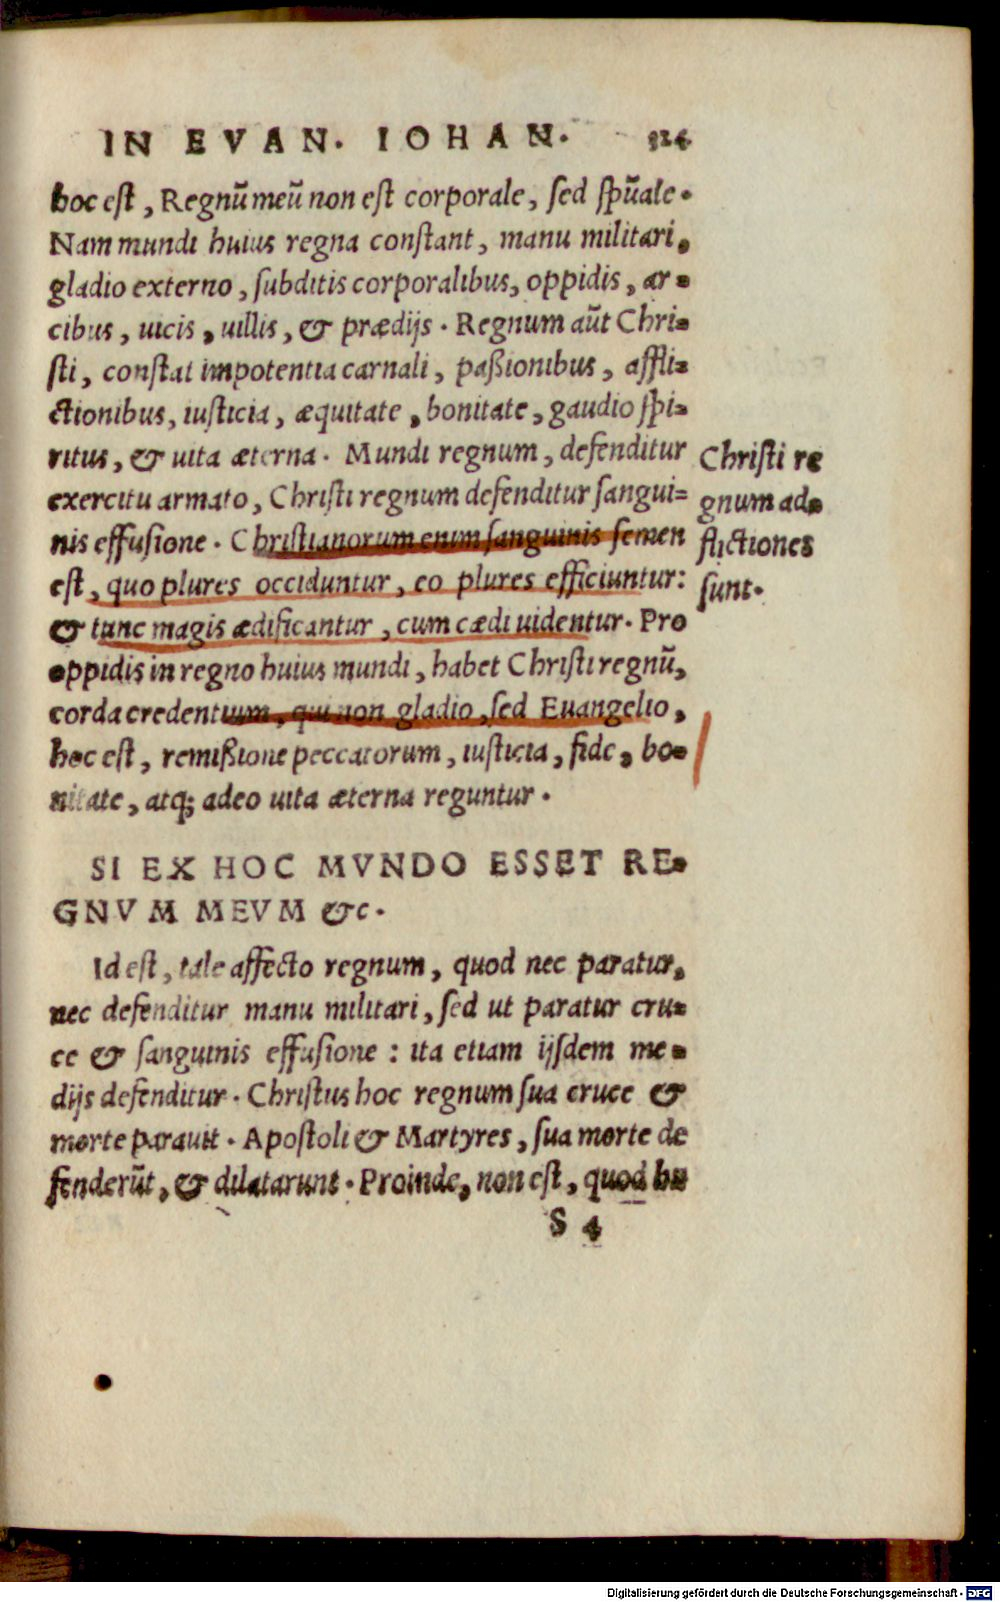 IN EVAN. IOHAN. 324
hoc est, Regnū meū non est corporale, sed spūale.
Nam mundi huius regna constant, manu militari,
gladio externo, subditis corporalibus, oppidis, ar-
cibus, uicis, uillis, & prædijs. Regnum aūt Chri-
sti, constat impotentia carnali, paßionibus, affli-
ctionibus, iusticia, æquitate, bonitate, gaudio spi-
ritus, & uita æterna. Mundi regnum, defenditur
exercitu armato, Christi regnum defenditur sangui-
nis effusione. Christianorum enim sanguinis semen
est, quo plures occiduntur, eo plures efficiuntur:
& tunc magis ædificantur, cum cædi uidentur. Pro
oppidis in regno huius mundi, habet Christi regnū,
corda credentium, qui non gladio, sed Euangelio,
hoc est, remißione peccatorum, iusticia, fide, bo-
nitate, atq; adeo uita æterna reguntur.
Christi re
gnum ad-
flictiones
sunt.
SI EX HOC MVNDO ESSET RE-
GNVM MEVM &c.
Id est, tale affecto regnum, quod nec paratur,
nec defenditur manu militari, sed ut paratur cru-
ce & sanguinis effusione: ita etiam ijsdem me-
dijs defenditur. Christus hoc regnum sua cruce &
morte parauit. Apostoli & Martyres, sua morte de
fenderūt, & dilatarunt. Proinde, non est, quod hu
S 4
Digitalisierung gefördert durch die Deutsche Forschungsgemeinschaft - DFG